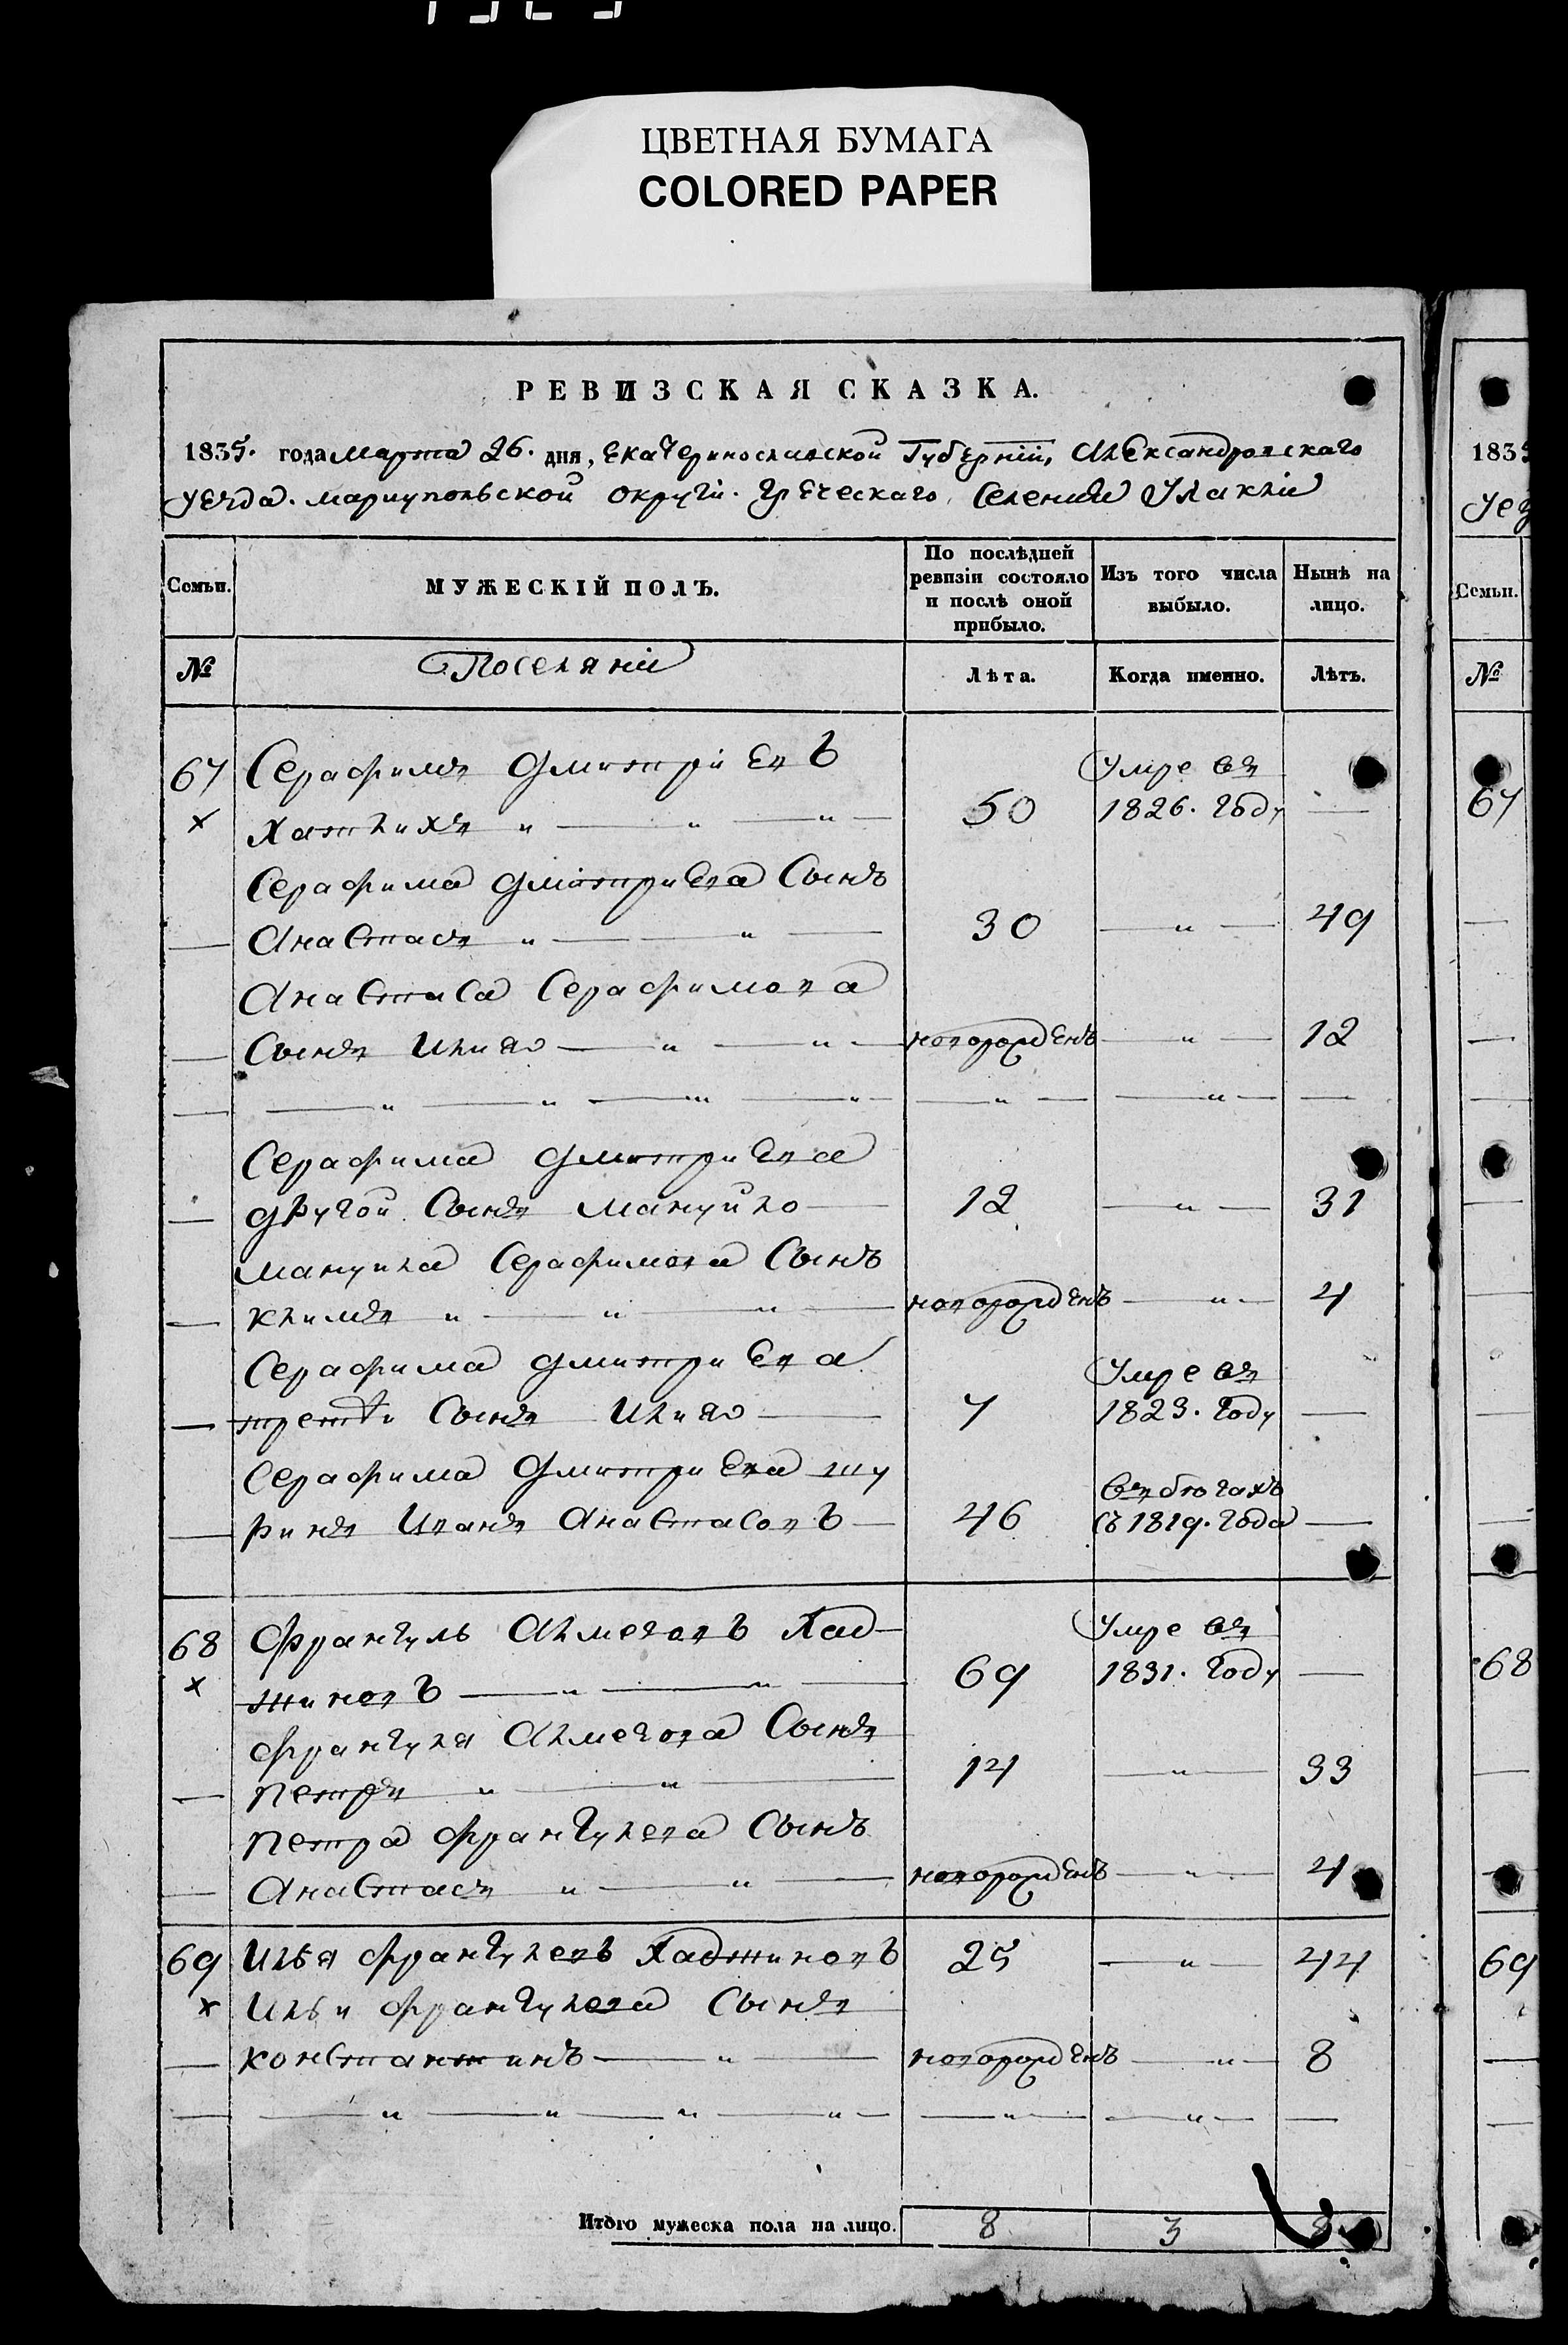 ЦВЕТНАЯ БУМАГА
COLORED PAPER
РЕВИЗСКАЯ СКАЗКА.
1835. года марта 26. дня, Екатеринославской Губернии, Александровскаго
Уезда. мариупольской округи. Греческаго Селения Улаклы
Семьи.
МУЖЕСКІЙ ПОЛЪ.
По послѣдней ревизіи состояло и послѣ оной прибыло.
Изъ того числа выбыло.
Нынѣ на лицо.
№
Поселяни
Лѣта.
Когда именно.
Лѣтъ.
67 Серафимъ Дмитриевъ Умре въ
50 1826. Году —
Серафима Дмитриева Сынъ
— Анастасъ 30 — 49
Анастаса Серафимова
— Сынъ Илияо новорожденъ — 12
Серафима Дмитриева
— Другой Сынъ мануйло 12 — 31
мануила Серафимова Сынъ
— климъ новорожденъ — 4
Серафима Дмитриева Умре въ
— трети Сынъ Илияо 7 1823. Году —
Серафима Дмитриева шу въ бѣгахъ
— ринъ Иванъ Анастасовъ 46 съ 1819. Года —
68 Франгуль Ахметовъ Хад- Умре въ
х жиновъ 69 1831. Году —
Франгуля Ахметова Сынъ
— петръ 14 — 33
петра Франгулева Сынъ
— Анастасъ новорожденъ — 4
69 Илья Франгулевъ Хаджиновъ 25 — 44
х Ильи Франгулева Сынъ
— константинъ новорожденъ — 8
Итого мужеска пола на лицо. 8 3
183
Уез
Семьи.
№
67
68
69